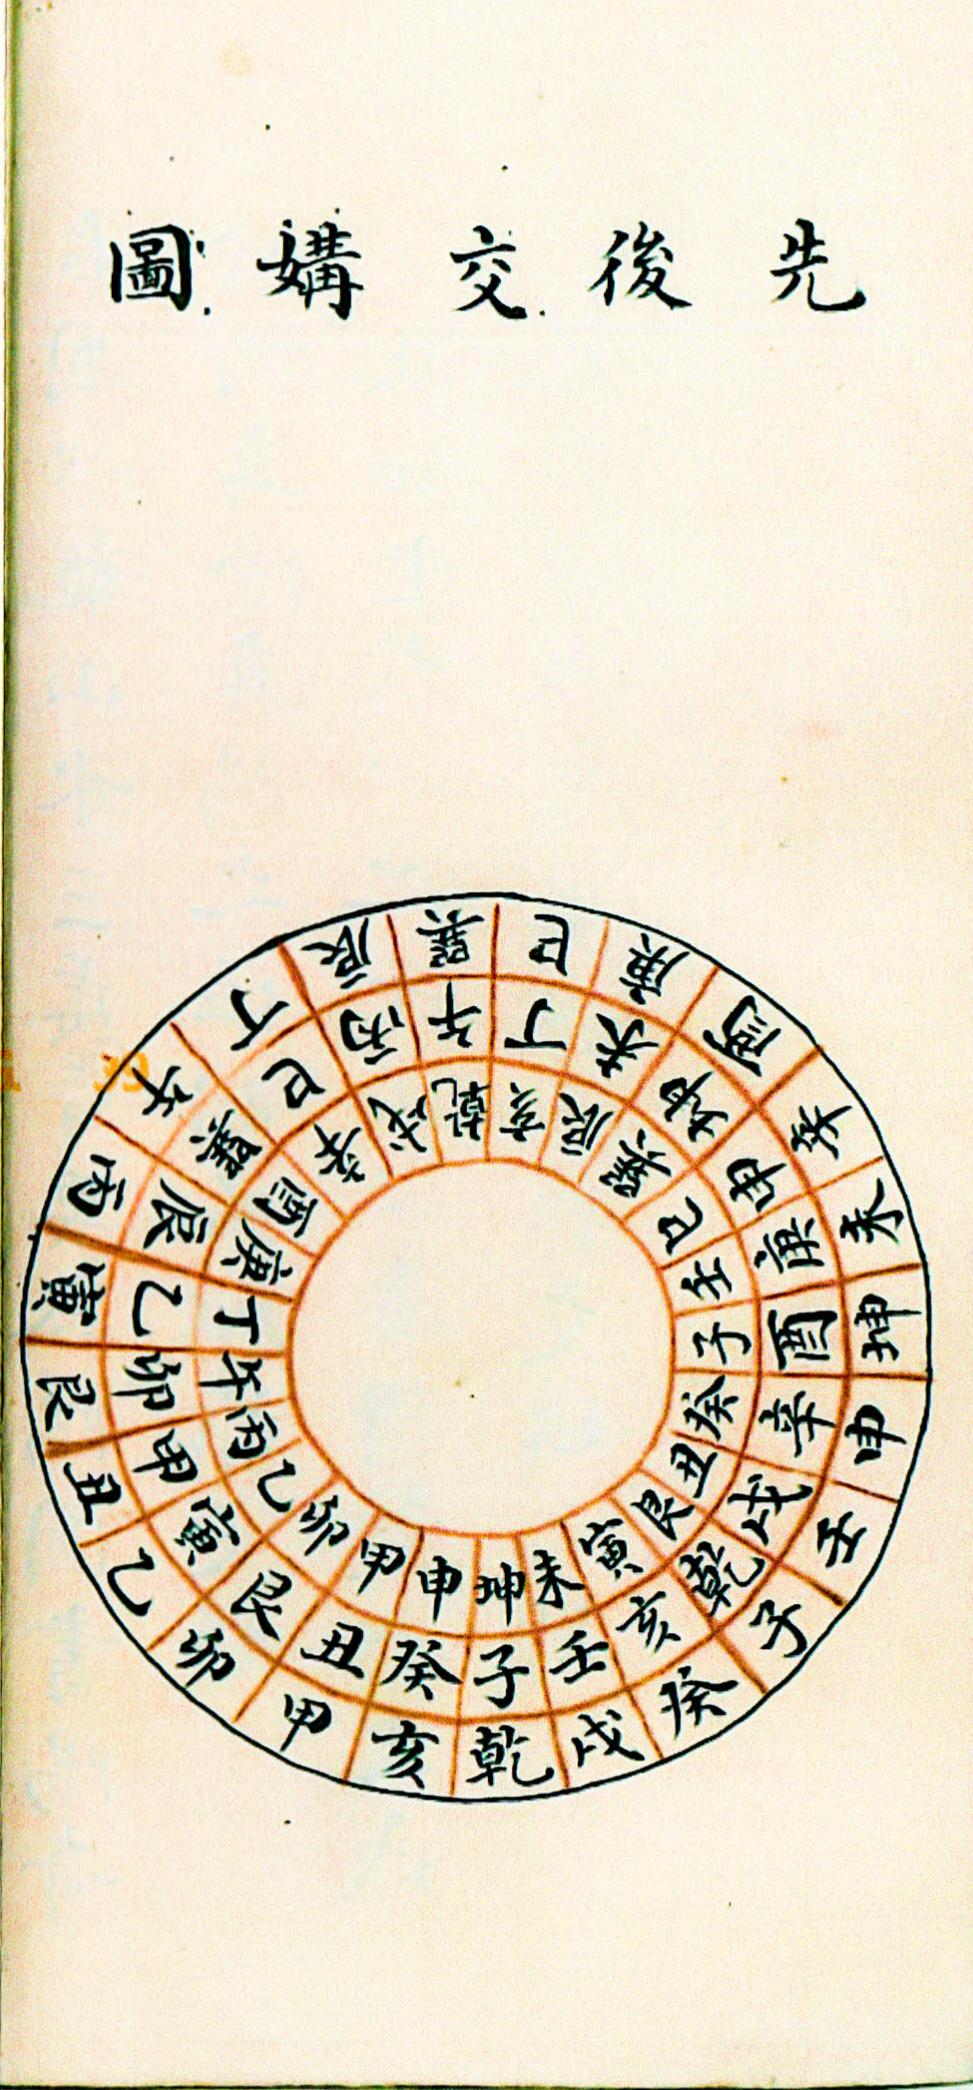 先後交媾圖
巽巳庚酉辛未坤申壬子癸戌乾亥甲卯乙丑艮寅丙午丁辰
午丁未坤申庚酉辛戌乾亥壬子癸丑艮寅甲卯乙辰巽巳丙
乾亥辰巽巳壬子癸丑艮寅未坤申甲卯乙丙午丁庚酉辛戌